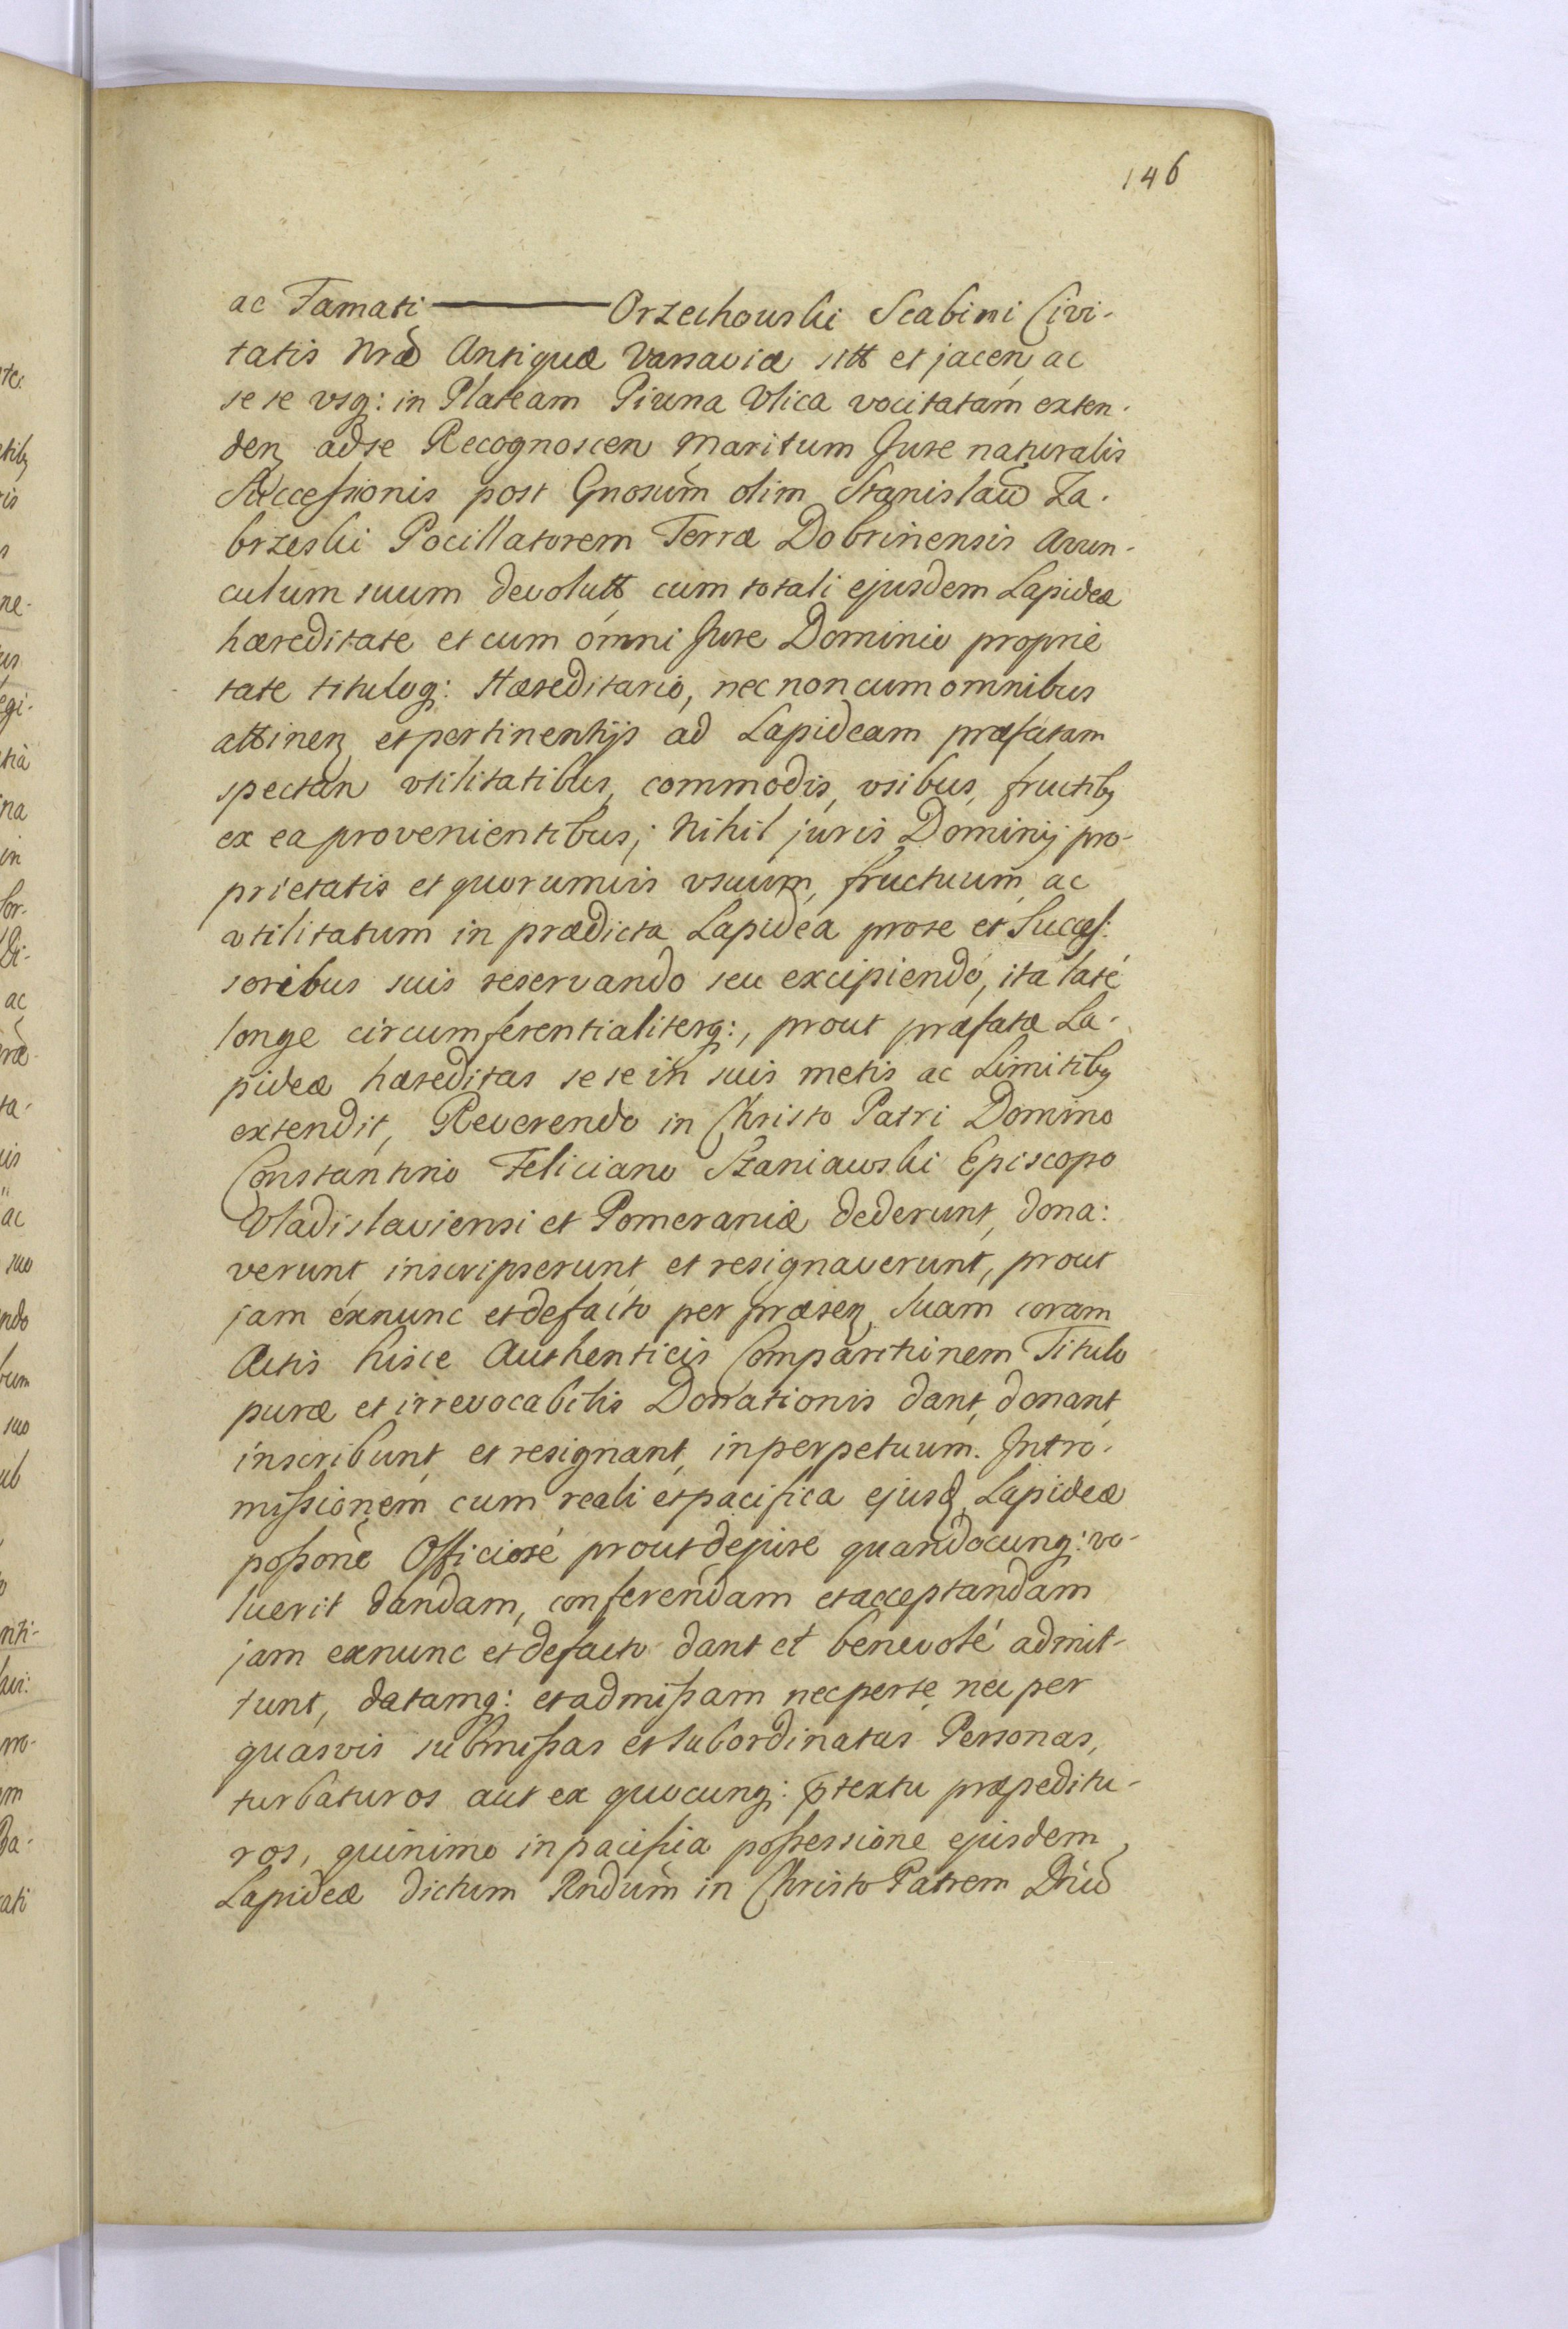 146
ac Famati ——— Orzechowski Scabini Civi-
tatis Nræ Antiquæ Varsaviæ sitt et jacen, ac
se se vsq: in Plateam Piwna Vlica vocitatam exten-
den, ad se Recognoscen Maritum Jure naturalis
Successionis post Gnosum olim Stanislaū Za-
brzeski Pocillatorem Terræ Dobrinensis Avun-
culum suum devolutt cum totali ejusdem Lapideæ
hæreditate et cum omni Jure Dominio proprie
tate tituloq: Hæreditario, nec non cum omnibus
attinen, et pertinentijs ad Lapideam præfatam
spectan vtilitatibus, commodis, vsibus, fructibq
ex ea provenientibus; Nihil juris Dominij pro-
prietatis et quorumvis vsuum, fructuum, ac
vtilitatum in prædicta Lapidea pro se et Succes:
soribus suis reservando seu excipiendo, ita laté
longe circumferentialiterq:, prout præfatæ La-
pideæ hæreditas se se in suis metis ac Limitibq
extendit, Reverendo in Christo Patri Domino
Constantino Feliciano Szaniawski Episcopo
Vladislaviensi et Pomeraniæ dederunt, dona:
verunt inscripserunt et resignaverunt, prout
jam exnunc et defacto per præsen, Suam coram
Actis hisce Authenticis Comparitionem Titulo
puræ et irrevocabilis Donationis dant, donant,
inscribunt et resignant, in perpetuum. Intro-
missionem cum reali et pacifica ejusd, Lapideæ
possone Officiosé prout de jure quandocunq: vo-
luerit dandam, conferendam et acceptandam
jam exnunc et defacto dant et benevolé admit-
tunt, datamq: et admissam nec per se, nec per
quasvis submissas et subordinatas Personas,
turbaturos aut ex quocunq: ptextu præpeditu-
ros, quinimo in pacifica possessione ejusdem,
Lapideæ dictum Rndum in Christo Patrem Dnū